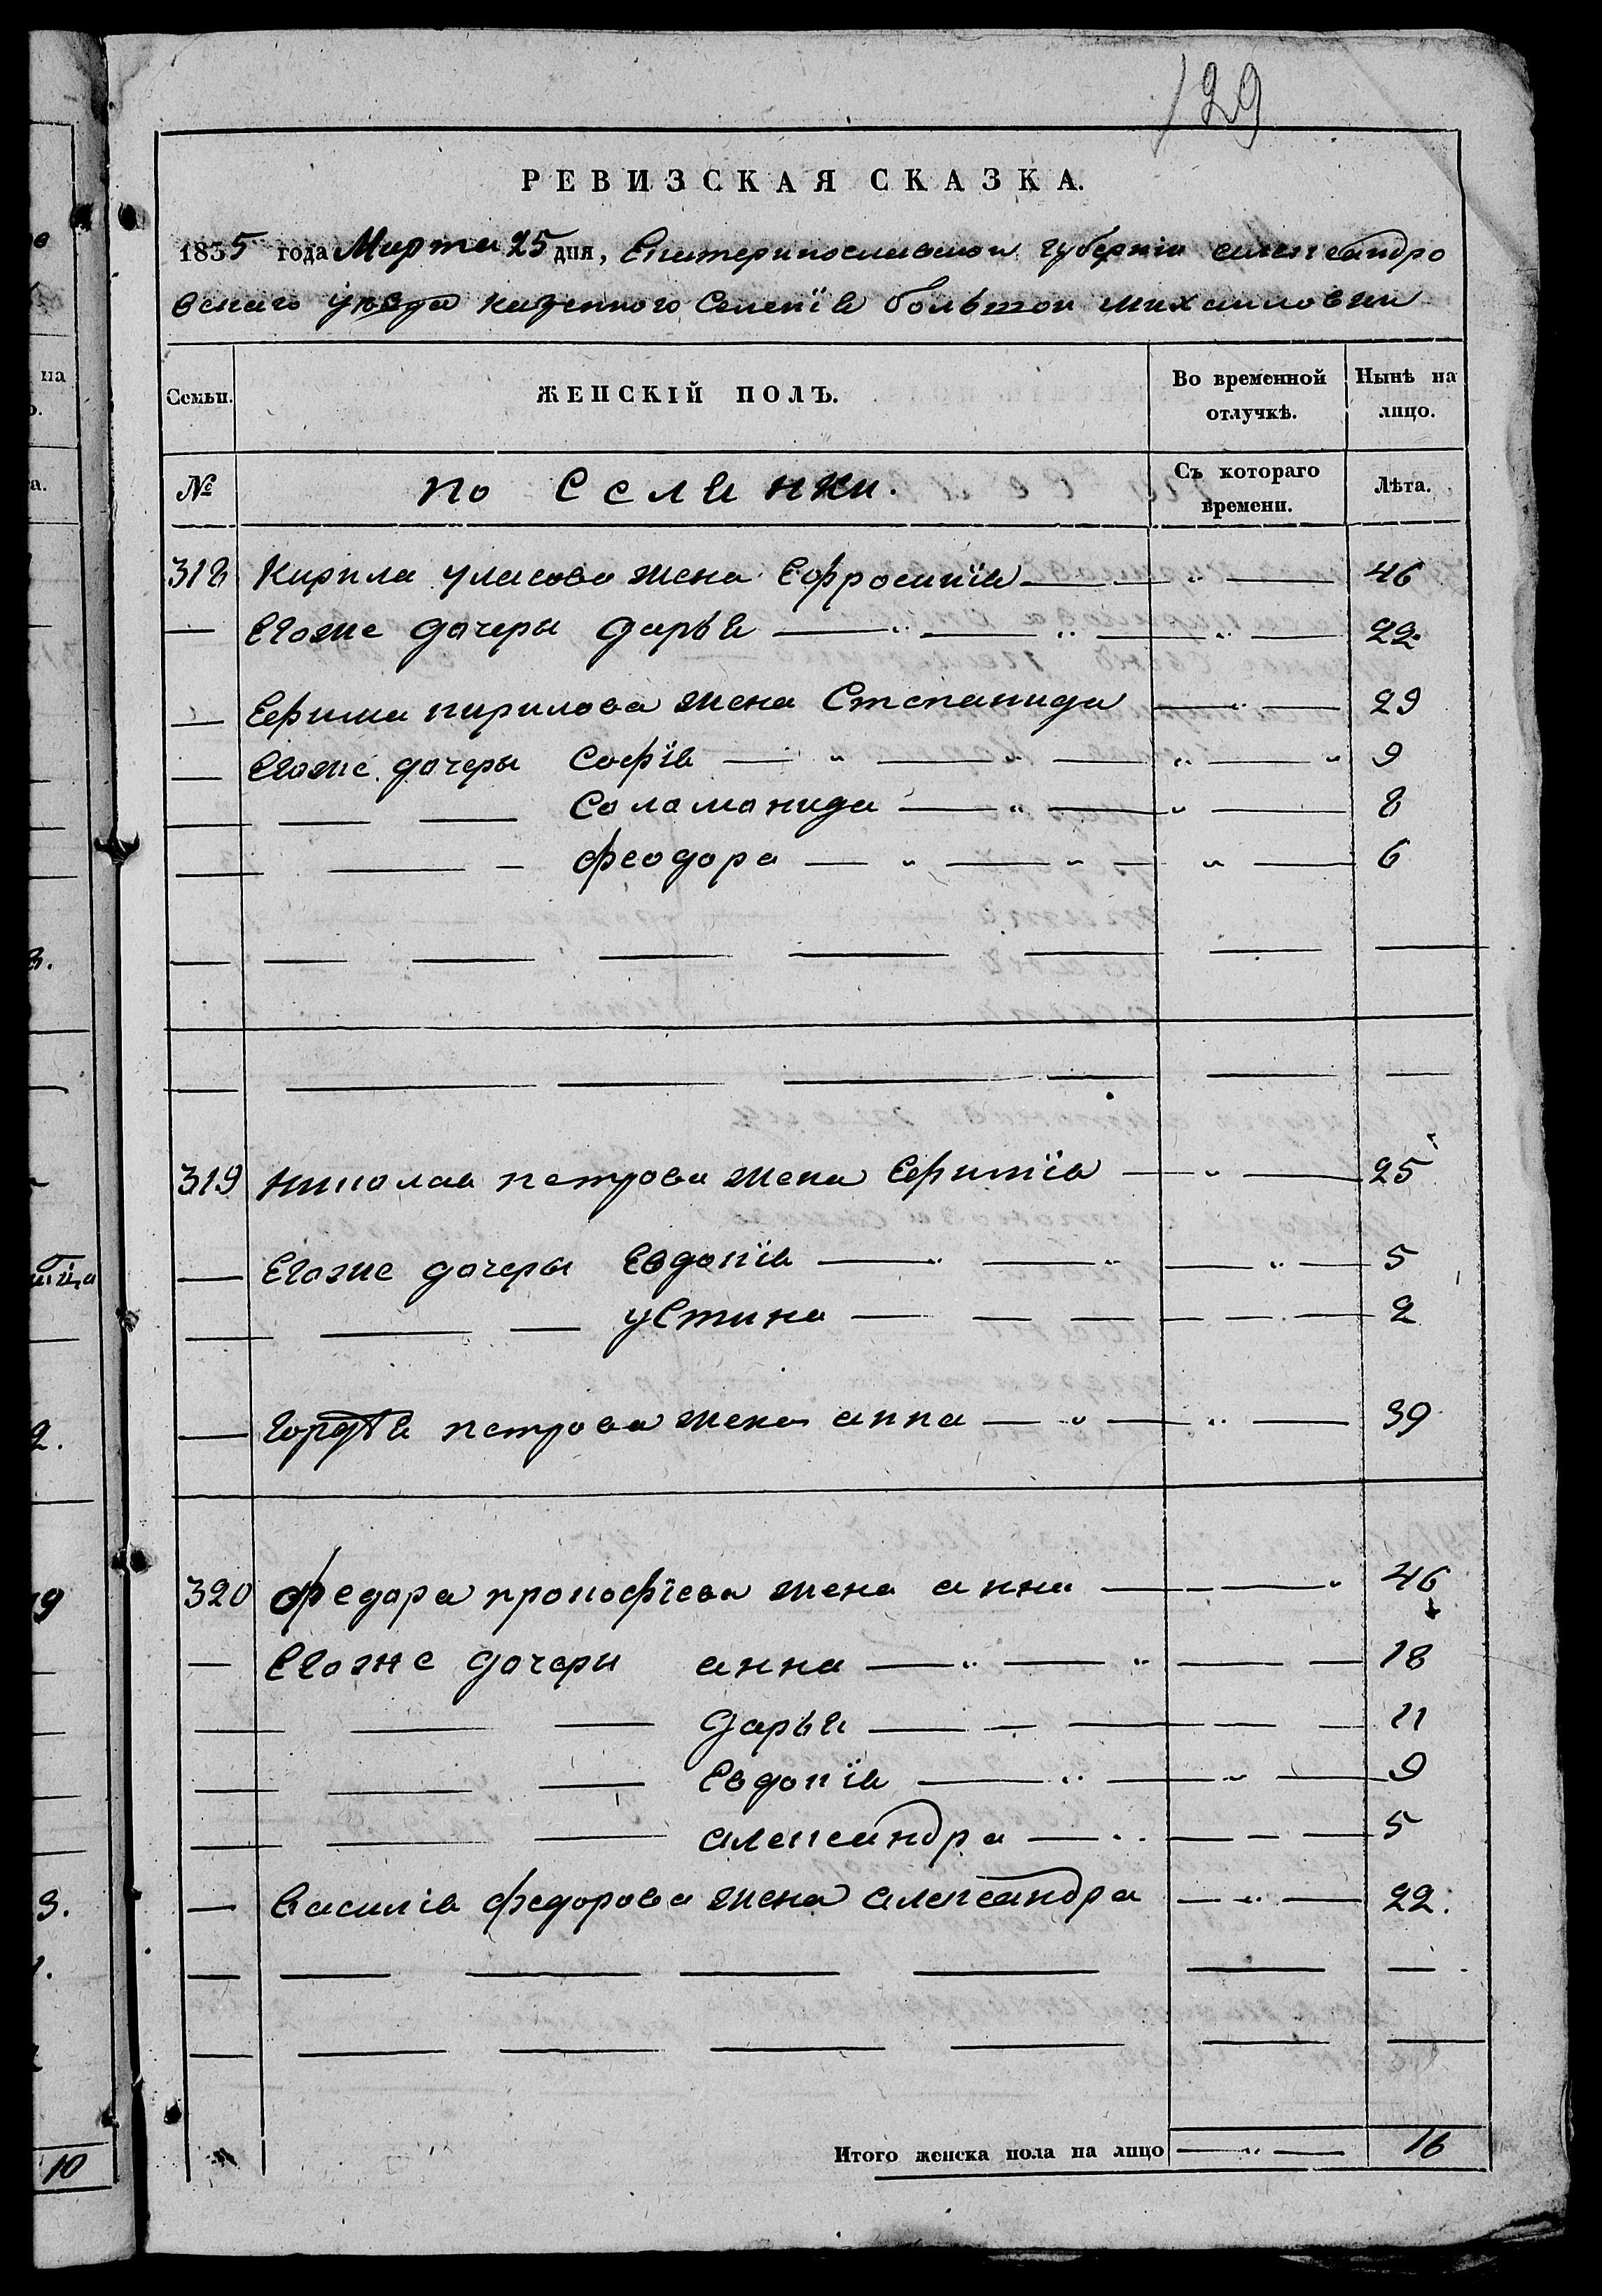 129
РЕВИЗСКАЯ СКАЗКА.
1835 года Марта 25 дня, Екатеринославской губернiи александро
вскаго уѣзда казенного Селенiя большой михаиловки
Семьи. ЖЕНСКIЙ ПОЛЪ. Во временной отлучкѣ. Нынѣ на лицо.
№ поселянки. Съ котораго времени. Лѣта.
318 Кирила уласова жена Ефросинïя — " — 46
— Егоже дочеры дарья — " — " — " — 22
— Ефима кирилова жена Степанида — " — 29
— Егоже дочеры Софïя — " — " — " — " 9
— — — Соломонида — " — " — 8
— — — феодора — " — " — " — 6
319 николая петрова жена Ефимïя — " — 25
— Егоже дочеры Евдокïя — " — " — " — 5
— — — устина — — — — — 2
— гордѣя петрова жена анна — " — " — 39
320 федора прокофïева жена анна — — — " 46
— Егоже дочери анна — " — " — — 18
— — — дарья — — — — — 11
— — — Евдокïя — " — " — 9
— — — александра — " — — — 5
— василiя федорова жена александра — " — 22.
Итого женска пола на лицо — " — 16
на
а.
3.
2.
9
3.
10